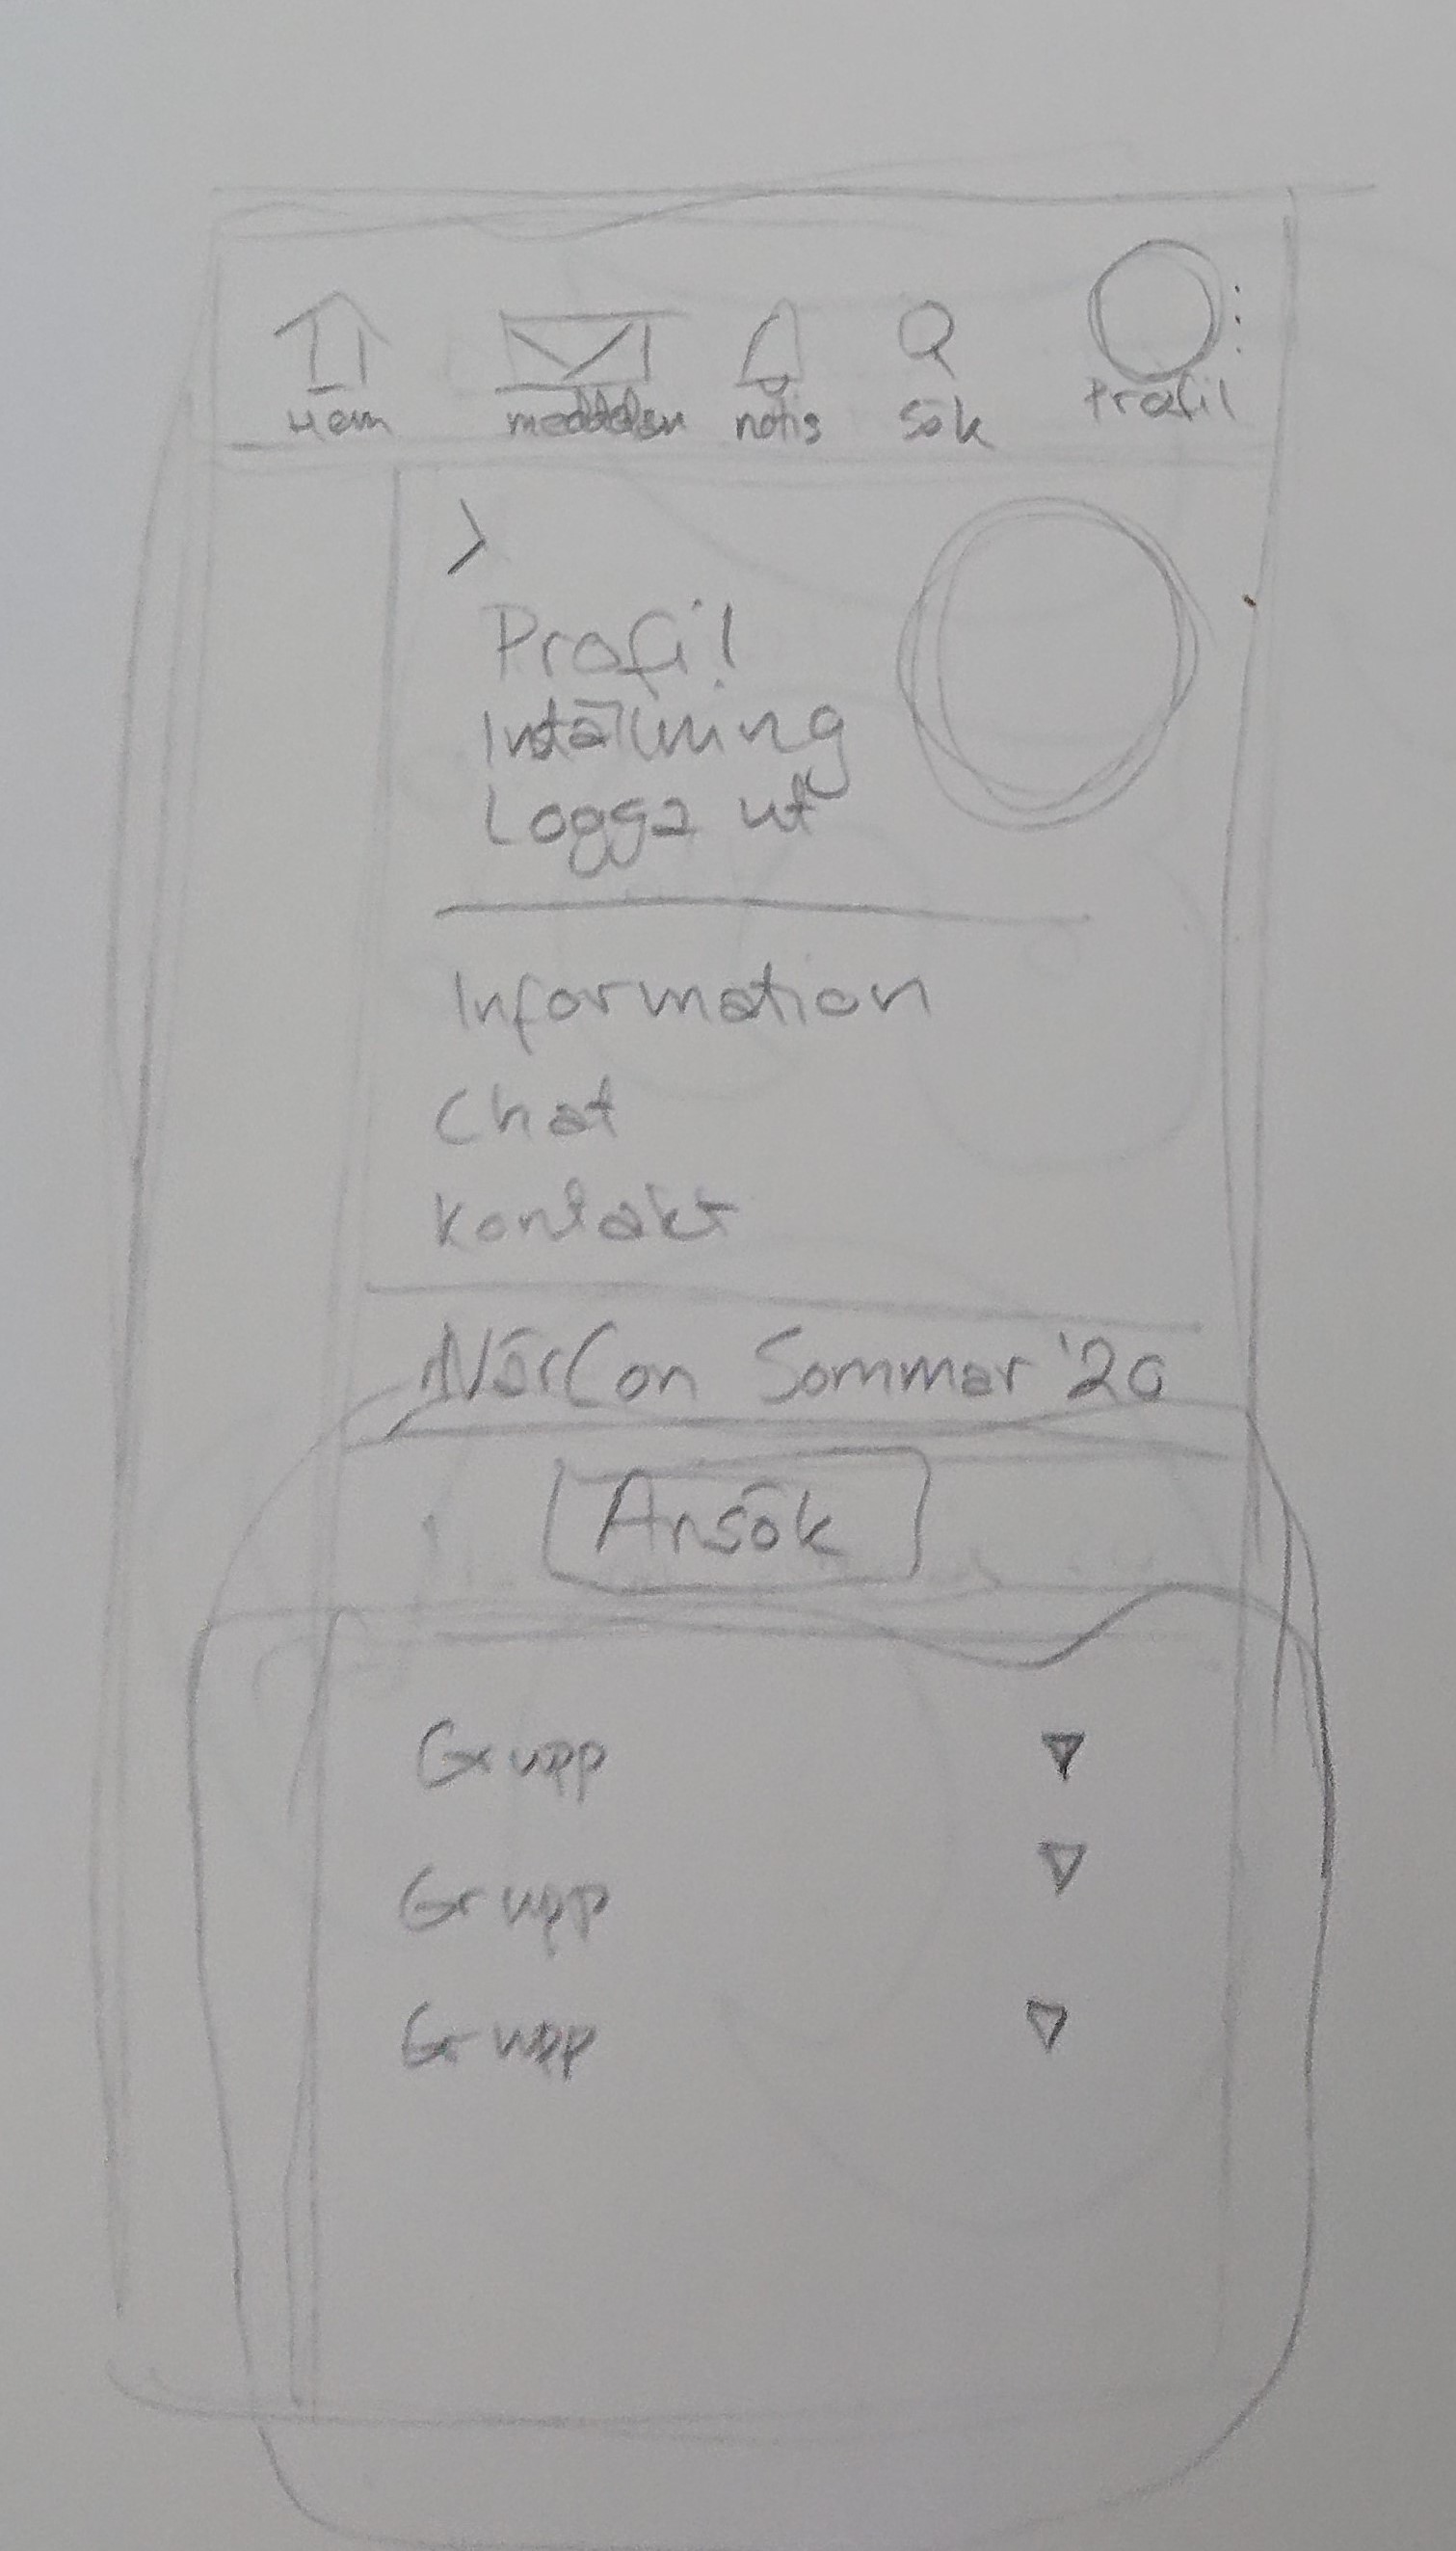 Hem meddelan notis Sök Profil
Profil
Inställning
Logga ut
Information
Chat
Kontakt
NärCon Sommar '20
Ansök
Grupp
Grupp
Grupp